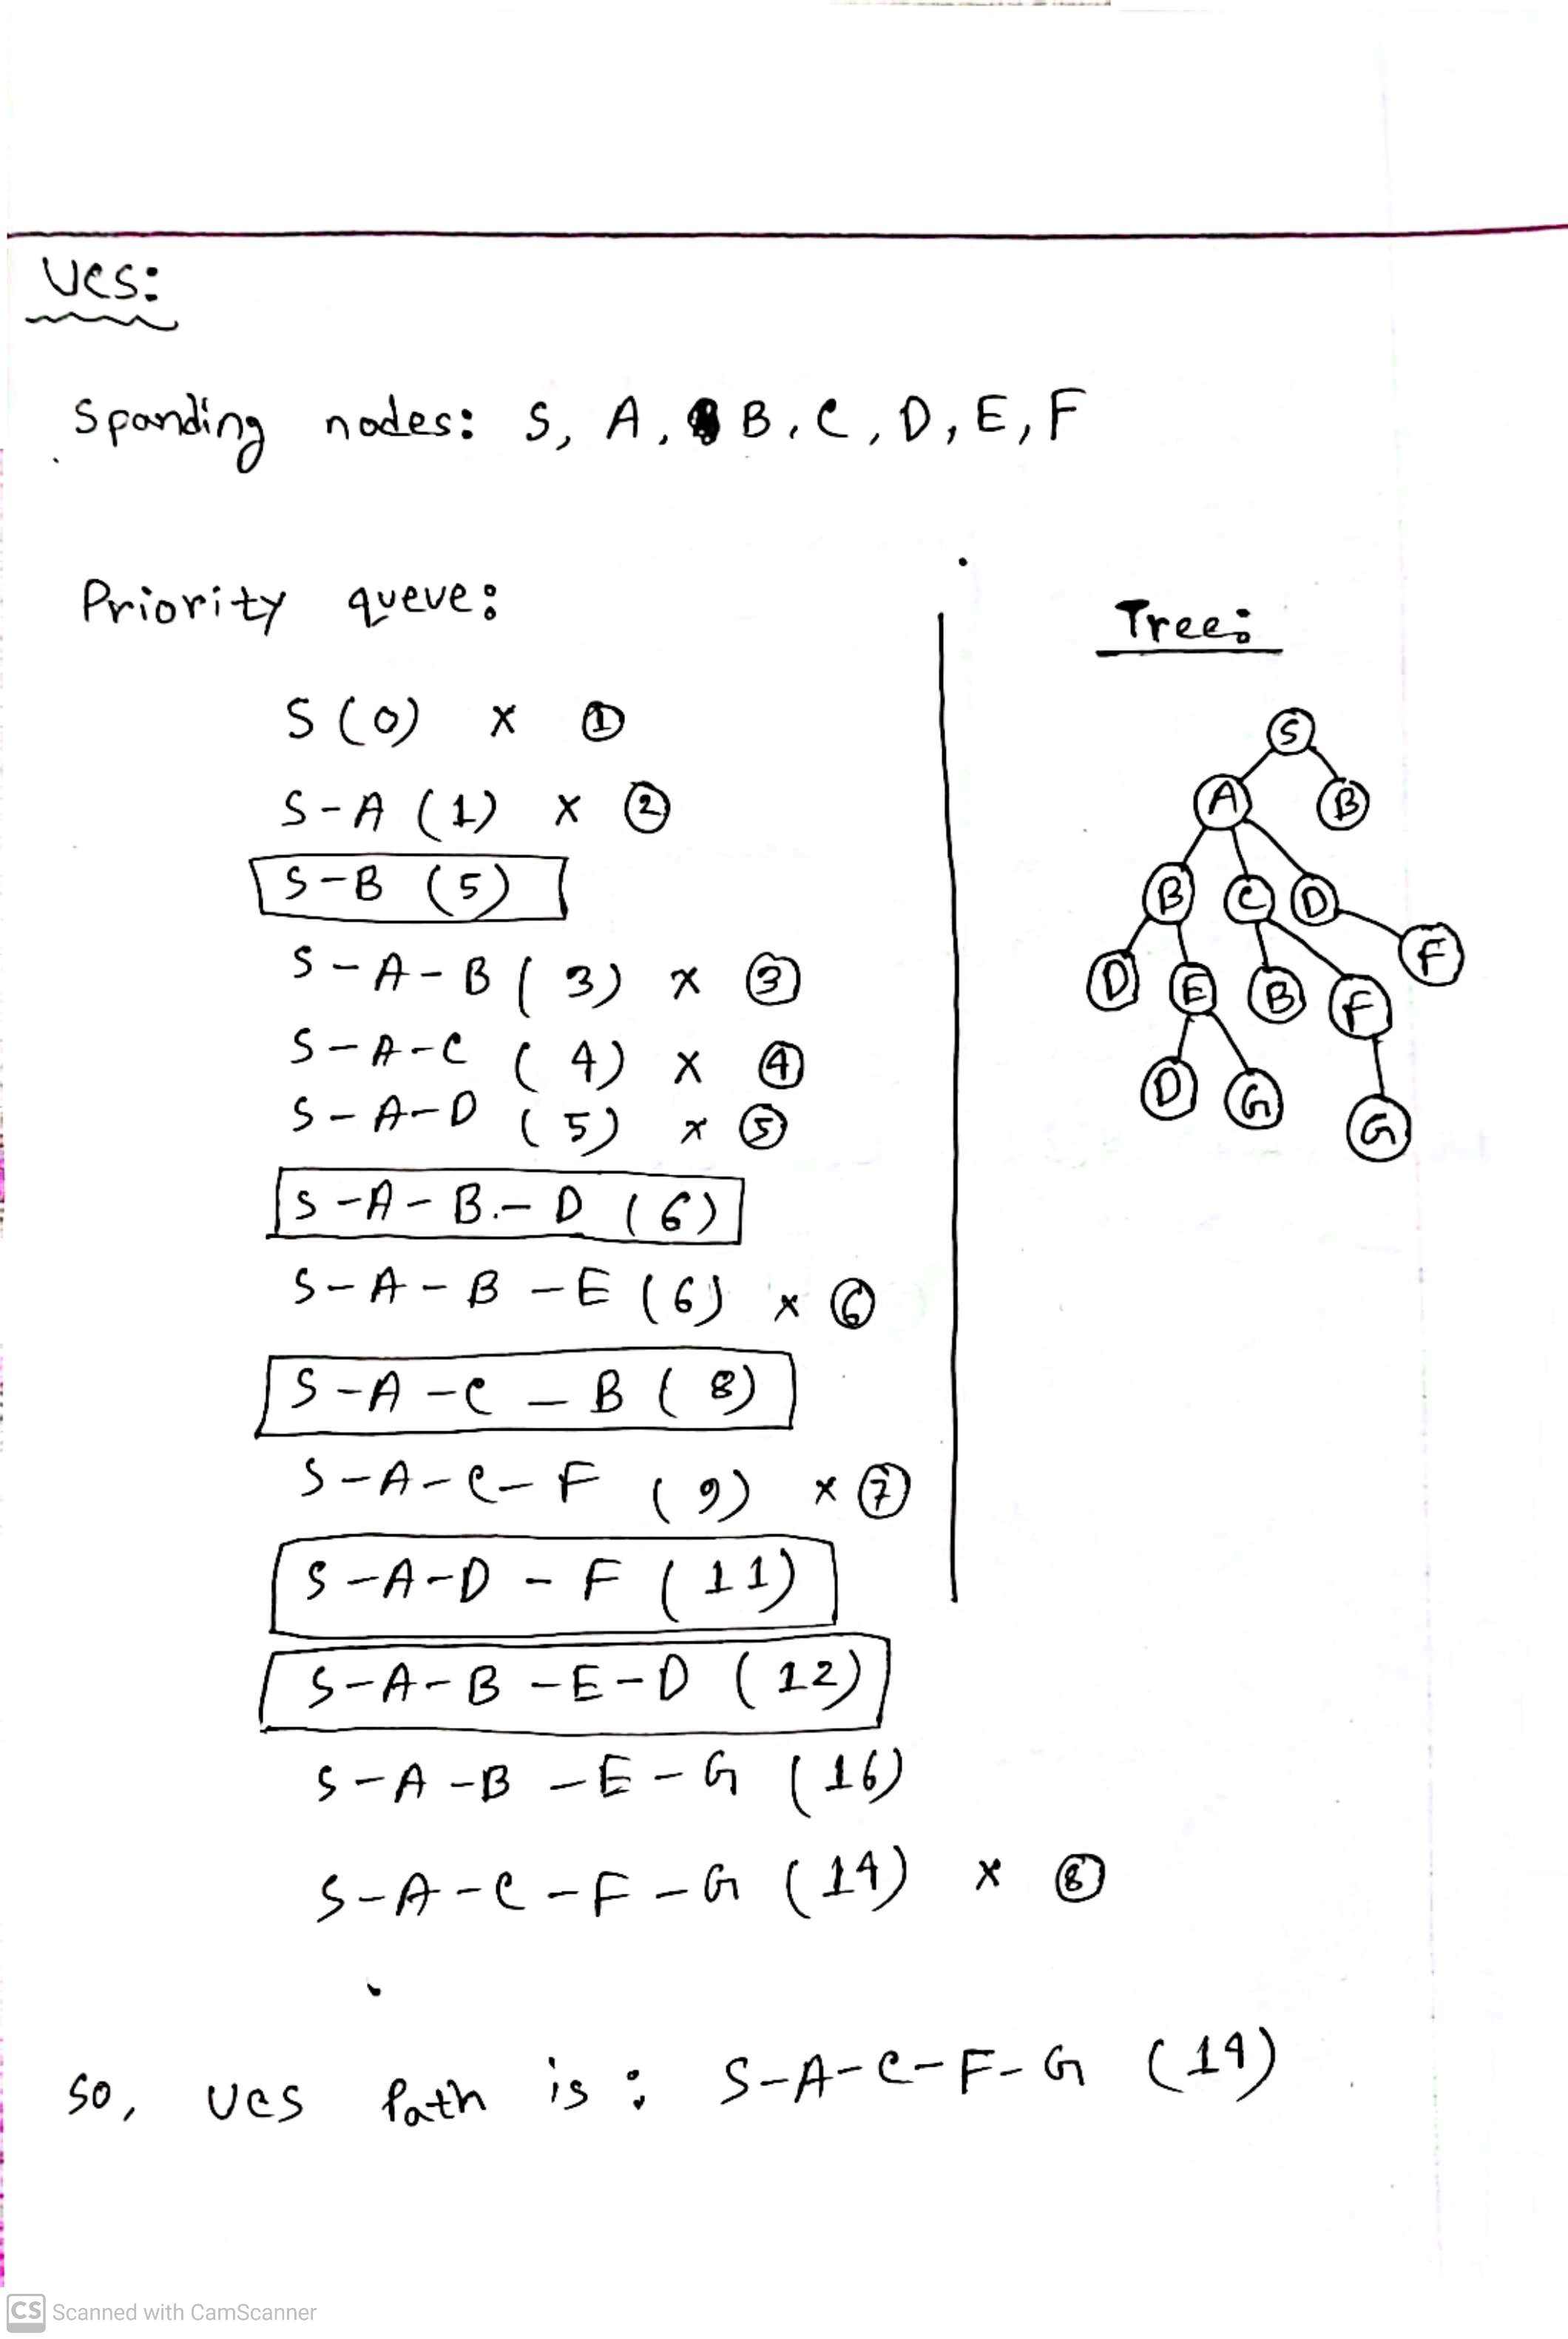 UCS:
Spanding nodes: S, A, B, C, D, E, F
Priority queue:
S (0) x ①
S-A (1) x ②
S-B (5)
S-A-B (3) x ③
S-A-C (4) x ④
S-A-D (5) x ⑤
S-A-B-D (6)
S-A-B-E (6) x ⑥
S-A-C-B (8)
S-A-C-F (9) x ⑦
S-A-D-F (11)
S-A-B-E-D (12)
S-A-B-E-G (16)
S-A-C-F-G (14) x ⑧
Tree:
S
A B
B C D
F
D E B F
D G G
So, UCS Path is: S-A-C-F-G (14)
CS Scanned with CamScanner